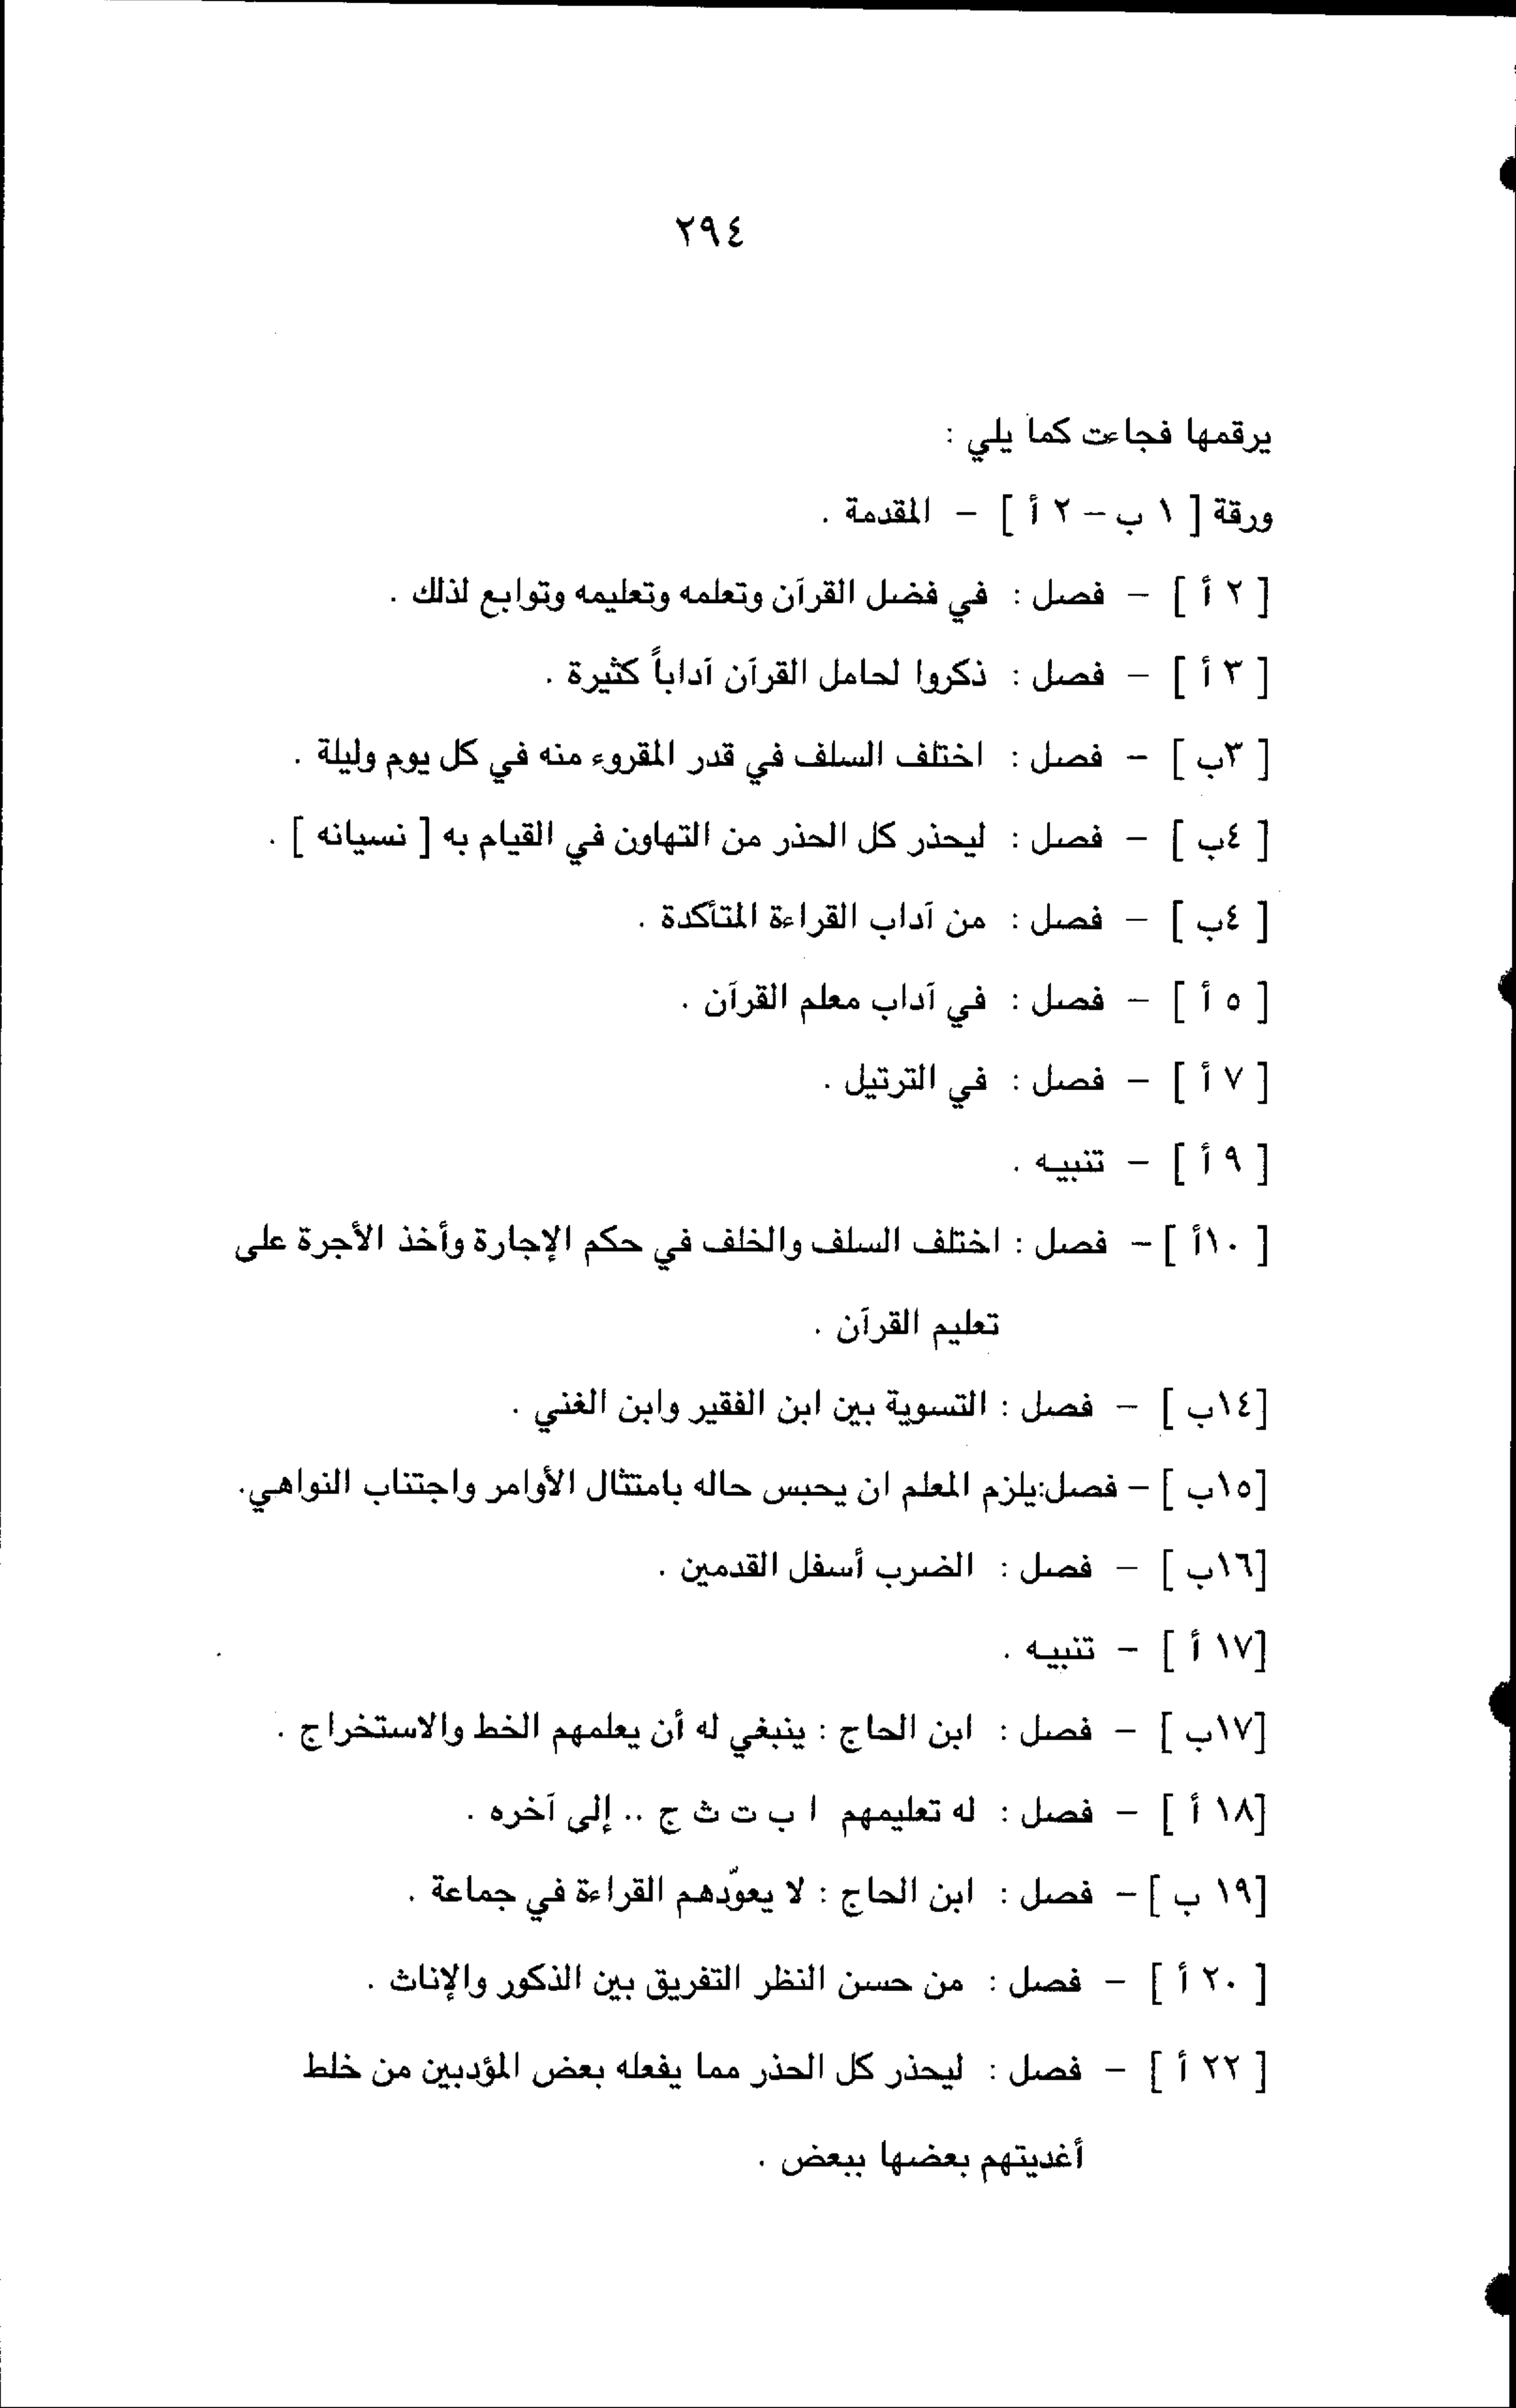 ٢٩٤
يرقمها فجاءت كما يلي :
ورقة [ ١ ب – ٢ أ ] – المقدمة .
[ ٢ أ ] – فصل : في فضل القرآن وتعلمه وتعليمه وتوابع لذلك .
[ ٣ أ ] – فصل : ذكروا لحامل القرآن آداباً كثيرة .
[ ٣ب ] – فصل : اختلف السلف في قدر المقروء منه في كل يوم وليلة .
[ ٤ب ] – فصل : ليحذر كل الحذر من التهاون في القيام به [ نسيانه ] .
[ ٤ب ] – فصل : من آداب القراءة المتأكدة .
[ ٥ أ ] – فصل : في آداب معلم القرآن .
[ ٧ أ ] – فصل : في الترتيل .
[ ٩ أ ] – تنبيه .
[ ١٠أ ] – فصل : اختلف السلف والخلف في حكم الإجارة وأخذ الأجرة على
تعليم القرآن .
[١٤ب ] – فصل : التسوية بين ابن الفقير وابن الغني .
[١٥ب ] – فصل:يلزم المعلم ان يحبس حاله بامتثال الأوامر واجتناب النواهي.
[١٦ب ] – فصل : الضرب أسفل القدمين .
[١٧ أ ] – تنبيه .
[١٧ب ] – فصل : ابن الحاج : ينبغي له أن يعلمهم الخط والاستخراج .
[١٨ أ ] – فصل : له تعليمهم ا ب ت ث ج .. إلى آخره .
[١٩ ب ] – فصل : ابن الحاج : لا يعوّدهم القراءة في جماعة .
[ ٢٠ أ ] – فصل : من حسن النظر التفريق بين الذكور والإناث .
[ ٢٢ أ ] – فصل : ليحذر كل الحذر مما يفعله بعض المؤدبين من خلط
أغديتهم بعضها ببعض .